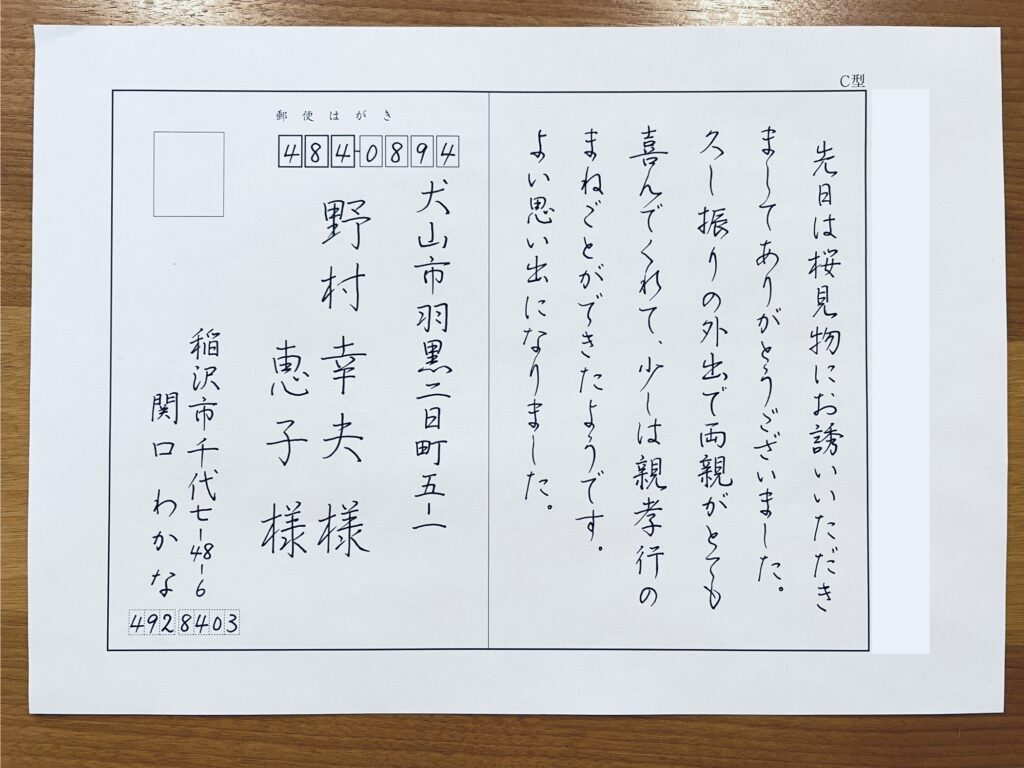 C型
先日は桜見物にお誘いいただき
ましてありがとうございました。
久し振りの外出で両親がとても
喜んでくれて、少しは親孝行の
まねごとができたようです。
よい思い出になりました。
郵便はがき
484-0894
犬山市羽黒二日町五-一
野村幸夫様
恵子様
稲沢市千代七-48-6
関口わかな
4928403